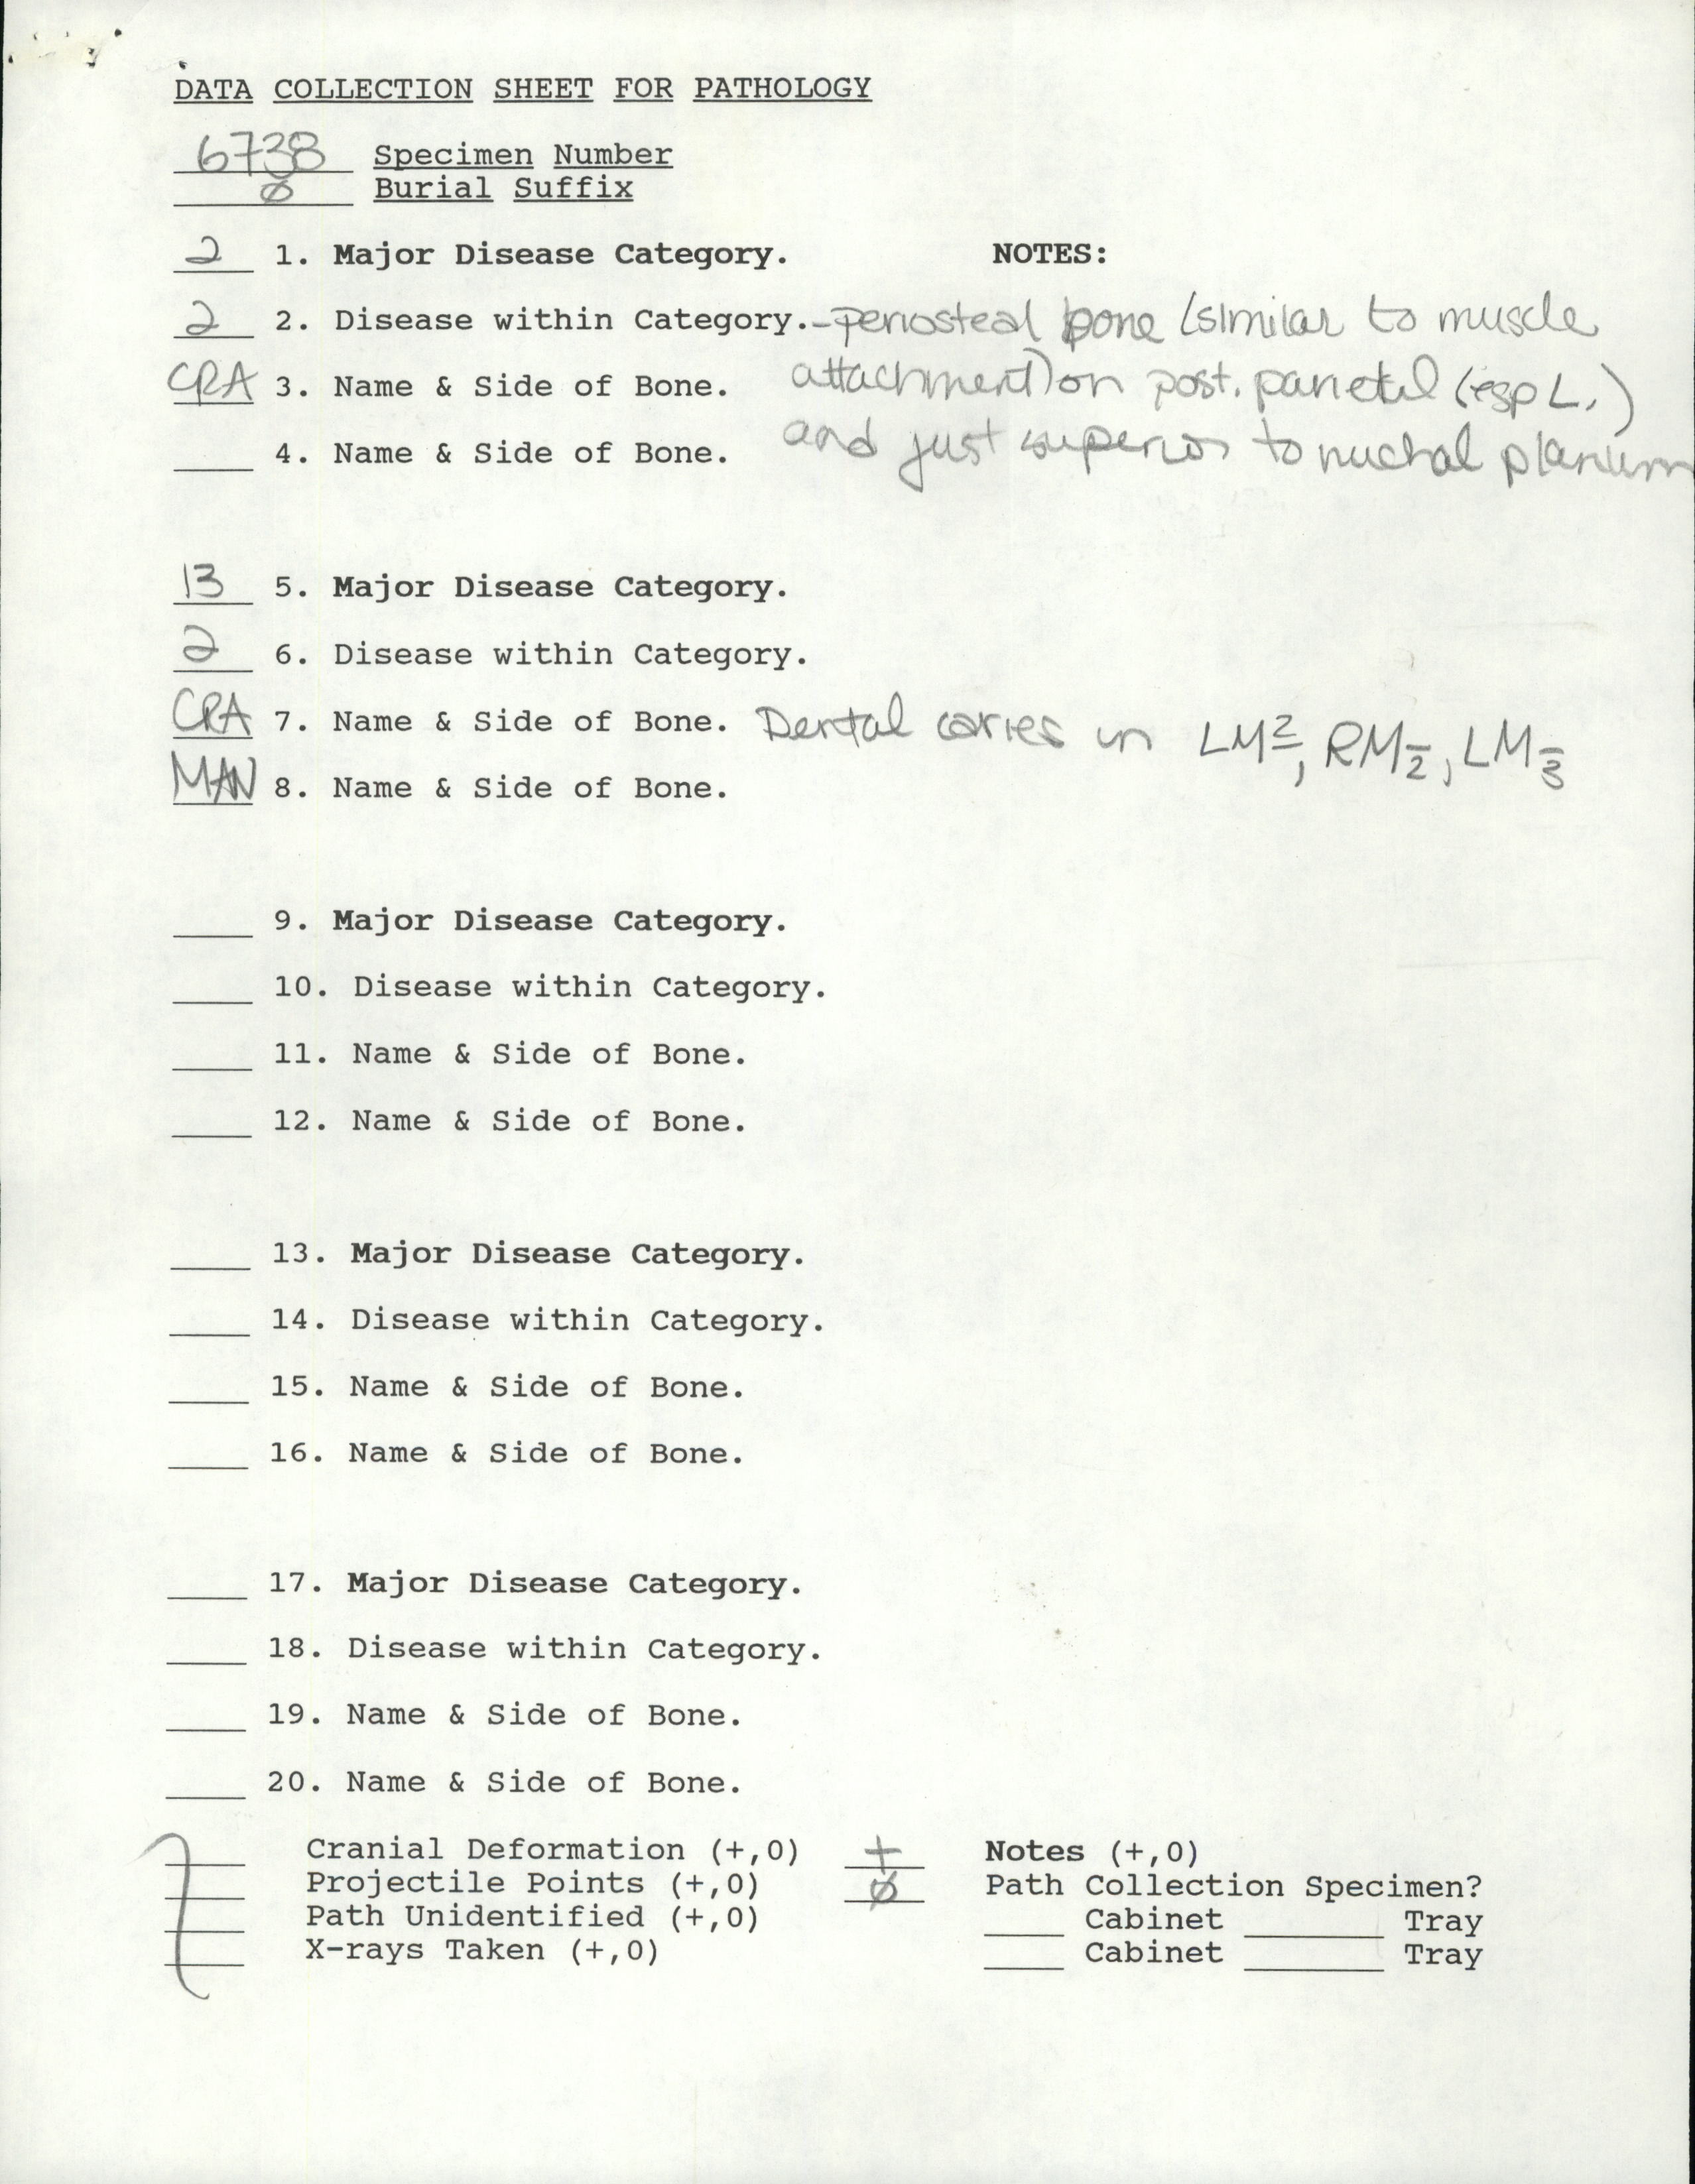 DATA COLLECTION SHEET FOR PATHOLOGY
6738 Specimen Number
Ø Burial Suffix
2 1. Major Disease Category. NOTES:
2 2. Disease within Category. - periosteal bone (similar to muscle
CRA 3. Name & Side of Bone. attachment) on post. parietal (esp L.)
4. Name & Side of Bone. and just superior to nuchal planum
13 5. Major Disease Category.
2 6. Disease within Category.
CRA 7. Name & Side of Bone. Dental caries in LM², RM₂, LM₃
MAN 8. Name & Side of Bone.
9. Major Disease Category.
10. Disease within Category.
11. Name & Side of Bone.
12. Name & Side of Bone.
13. Major Disease Category.
14. Disease within Category.
15. Name & Side of Bone.
16. Name & Side of Bone.
17. Major Disease Category.
18. Disease within Category.
19. Name & Side of Bone.
20. Name & Side of Bone.
Cranial Deformation (+,0) + Notes (+,0)
Projectile Points (+,0) Ø Path Collection Specimen?
Path Unidentified (+,0) Cabinet Tray
X-rays Taken (+,0) Cabinet Tray